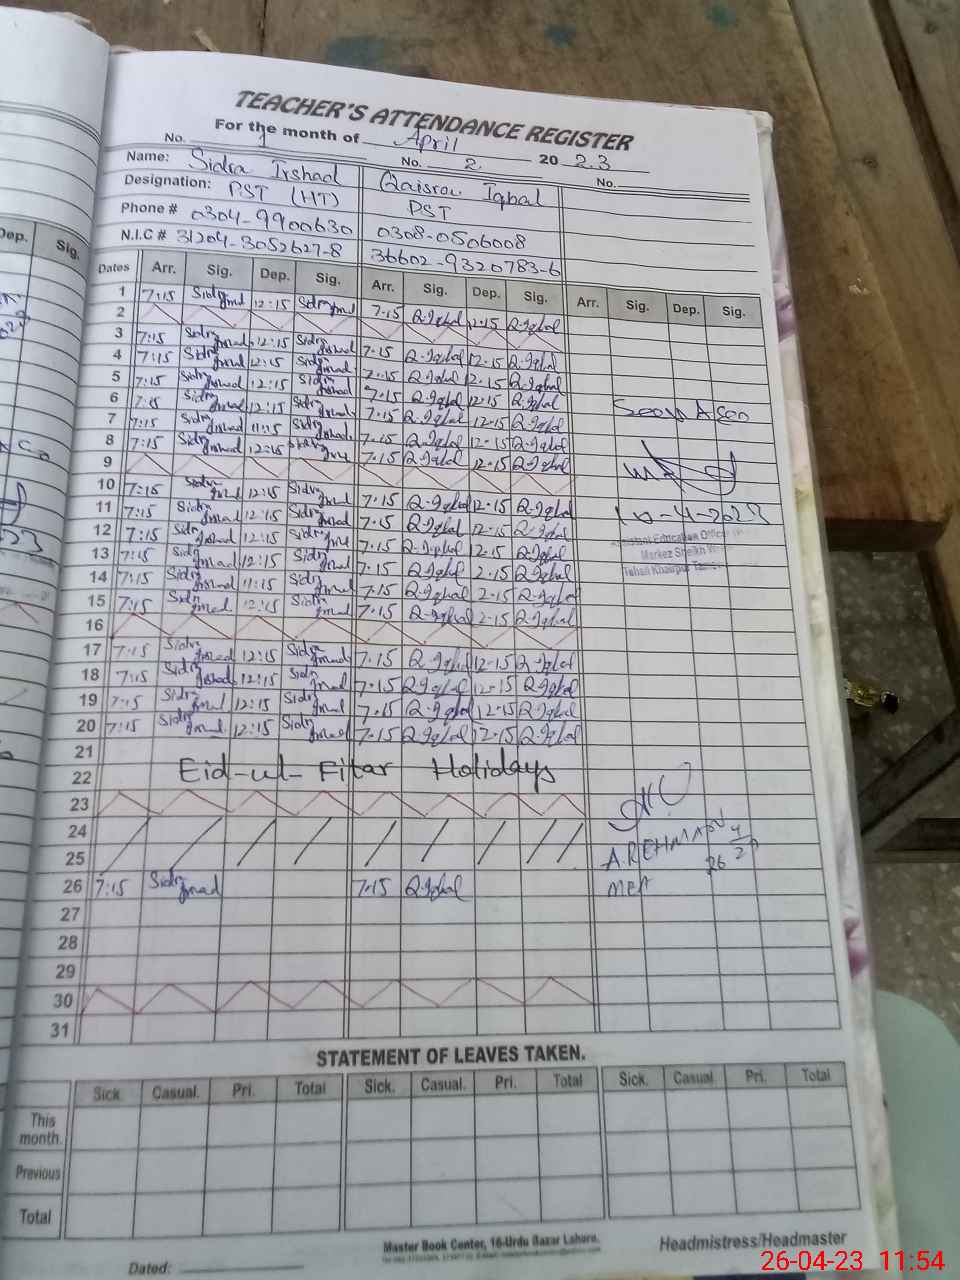 TEACHER'S ATTENDANCE REGISTER
For the month of April 2023
No. 1 No. 2 No.
Name: Sidra Irshad Qaisra Iqbal
Designation: PST (HT) PST
Phone # 0304-9900630 0308-0506008
N.I.C # 31204-3052627-8 36602-9320783-6
Dates Arr. Sig. Dep. Sig. Arr. Sig. Dep. Sig. Arr. Sig. Dep. Sig.
1 7:15 Sidra Irshad 12:15 Sidra Irshad 7.15 Q.Iqbal 12.15 Q.Iqbal
2
3 7:15 Sidra Irshad 12:15 Sidra Irshad 7.15 Q.Iqbal 12.15 Q.Iqbal
4 7:15 Sidra Irshad 12:15 Sidra Irshad 7.15 Q.Iqbal 12.15 Q.Iqbal
5 7:15 Sidra Irshad 12:15 Sidra Irshad 7.15 Q.Iqbal 12.15 Q.Iqbal
6 7:15 Sidra Irshad 12:15 Sidra Irshad 7.15 Q.Iqbal 12.15 Q.Iqbal
7 7:15 Sidra Irshad 11:15 Sidra Irshad 7.15 Q.Iqbal 12.15 Q.Iqbal
8 7:15 Sidra Irshad 12:15 7.15 Q.Iqbal 12.15 Q.Iqbal
9
10 7:15 Sidra Irshad 12:15 Sidra Irshad 7.15 Q.Iqbal 12.15 Q.Iqbal
11 7:15 Sidra Irshad 12:15 Sidra Irshad 7.15 Q.Iqbal 12.15 Q.Iqbal
10-4-2023
12 7:15 Sidra Irshad 12:15 Sidra Irshad 7.15 Q.Iqbal 12.15 Q.Iqbal
Assistant Education Officer
13 7:15 Sidra Irshad 12:15 Sidra Irshad 7.15 Q.Iqbal 2.15 Q.Iqbal
Markez Sheikh
14 7:15 Sidra Irshad 11:15 Sidra Irshad 7.15 Q.Iqbal 2.15 Q.Iqbal
Tehsil Khairpur
15 7:15 Sidra Irshad 12:15 Sidra Irshad 7.15 Q.Iqbal 2.15 Q.Iqbal
16
17 7:15 Sidra Irshad 12:15 Sidra Irshad 7.15 Q.Iqbal 12.15 Q.Iqbal
18 7:15 Sidra Irshad 12:15 Sidra Irshad 7.15 Q.Iqbal 12.15 Q.Iqbal
19 7:15 Sidra Irshad 12:15 Sidra Irshad 7.15 Q.Iqbal 12.15 Q.Iqbal
20 7:15 Sidra Irshad 12:15 Sidra Irshad 7.15 Q.Iqbal 12.15 Q.Iqbal
21
22 Eid-ul-Fitar Holidays
23
24
25 A.REHMAN 26 4
26 7:15 Sidra Irshad 7.15 Q.Iqbal MEA
27
28
29
30
31
STATEMENT OF LEAVES TAKEN.
Sick. Casual. Pri. Total Sick. Casual. Pri. Total Sick. Casual. Pri. Total
This month.
Previous
Total
Master Book Center, 16-Urdu Bazar Lahore.
Dated: Headmistress/Headmaster
26-04-23 11:54